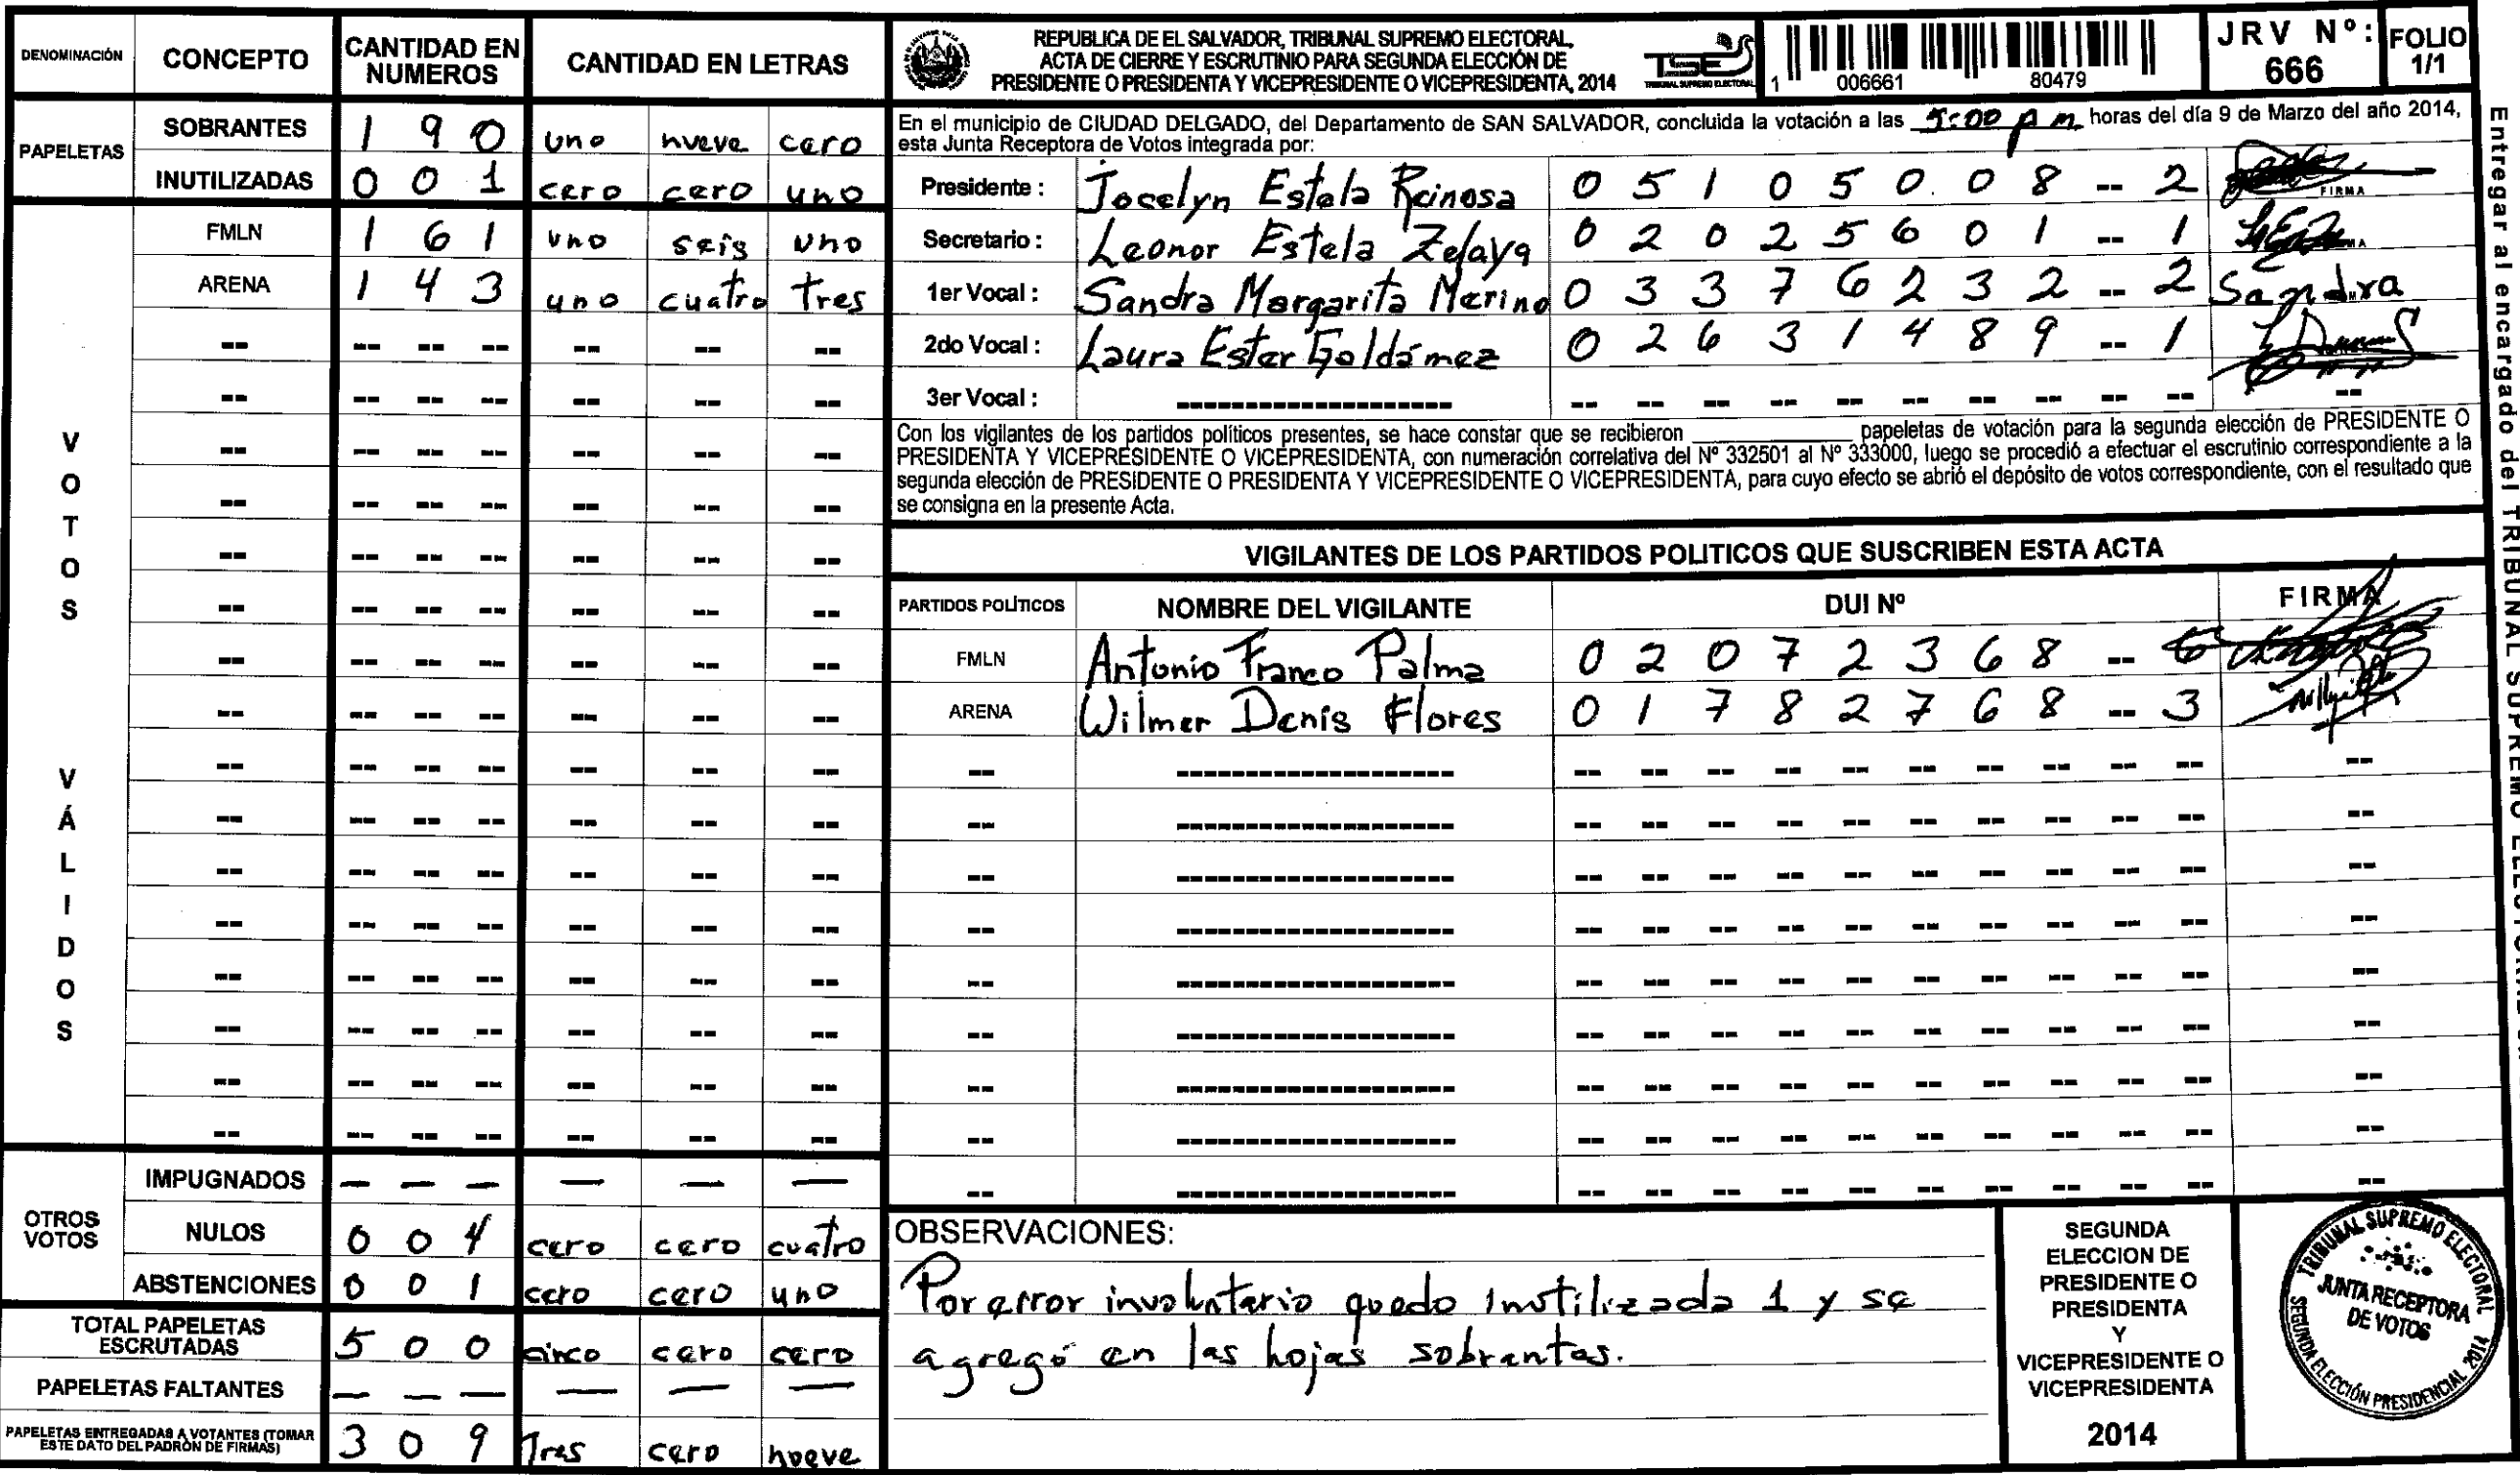 DENOMINACIÓN CONCEPTO CANTIDAD EN NUMEROS CANTIDAD EN LETRAS
PAPELETAS
SOBRANTES 1 9 0 uno nueve cero
INUTILIZADAS 0 0 1 cero cero uno
VOTOS VÁLIDOS
FMLN 1 6 1 uno seis uno
ARENA 1 4 3 uno cuatro tres
OTROS VOTOS
IMPUGNADOS — — — — — —
NULOS 0 0 4 cero cero cuatro
ABSTENCIONES 0 0 1 cero cero uno
TOTAL PAPELETAS ESCRUTADAS 5 0 0 cinco cero cero
PAPELETAS FALTANTES — — — — — —
PAPELETAS ENTREGADAS A VOTANTES (TOMAR ESTE DATO DEL PADRÓN DE FIRMAS) 3 0 9 Tres cero nueve
REPUBLICA DE EL SALVADOR, TRIBUNAL SUPREMO ELECTORAL,
ACTA DE CIERRE Y ESCRUTINIO PARA SEGUNDA ELECCIÓN DE
PRESIDENTE O PRESIDENTA Y VICEPRESIDENTE O VICEPRESIDENTA, 2014
TSE
TRIBUNAL SUPREMO ELECTORAL
1 006661 80479
JRV Nº: 666
FOLIO 1/1
En el municipio de CIUDAD DELGADO, del Departamento de SAN SALVADOR, concluida la votación a las 5:00 p m horas del día 9 de Marzo del año 2014,
esta Junta Receptora de Votos integrada por:
Presidente : Jocelyn Estela Reinosa 0 5 1 0 5 0 0 8 -- 2 FIRMA
Secretario : Leonor Estela Zelaya 0 2 0 2 5 6 0 1 -- 1
1er Vocal : Sandra Margarita Merino 0 3 3 7 6 2 3 2 -- 2 Sandra
2do Vocal : Laura Ester Galdámez 0 2 6 3 1 4 8 9 -- 1
3er Vocal :
Con los vigilantes de los partidos políticos presentes, se hace constar que se recibieron ________ papeletas de votación para la segunda elección de PRESIDENTE O
PRESIDENTA Y VICEPRESIDENTE O VICEPRESIDENTA, con numeración correlativa del Nº 332501 al Nº 333000, luego se procedió a efectuar el escrutinio correspondiente a la
segunda elección de PRESIDENTE O PRESIDENTA Y VICEPRESIDENTE O VICEPRESIDENTA, para cuyo efecto se abrió el depósito de votos correspondiente, con el resultado que
se consigna en la presente Acta.
VIGILANTES DE LOS PARTIDOS POLITICOS QUE SUSCRIBEN ESTA ACTA
PARTIDOS POLÍTICOS NOMBRE DEL VIGILANTE DUI Nº FIRMA
FMLN Antonio Franco Palma 0 2 0 7 2 3 6 8 -- 6
ARENA Wilmer Denis Flores 0 1 7 8 2 7 6 8 -- 3
OBSERVACIONES:
Por error involuntario quedo Inutilizada 1 y se
agregó en las hojas sobrantes.
SEGUNDA
ELECCION DE
PRESIDENTE O
PRESIDENTA
Y
VICEPRESIDENTE O
VICEPRESIDENTA
2014
TRIBUNAL SUPREMO ELECTORAL
JUNTA RECEPTORA
DE VOTOS
SEGUNDA ELECCIÓN PRESIDENCIAL 2014
Entregar al encargado del TRIBUNAL SUPREMO